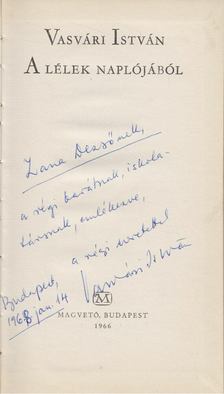 VASVÁRI ISTVÁN
A LÉLEK NAPLÓJÁBÓL
Zana Dezsőnek,
a régi barátnak, iskola-
társnak, emlékezve,
a régi szeretettel
Budapest, Vasvári István
1968 jan. 14
M
MAGVETŐ, BUDAPEST
1966